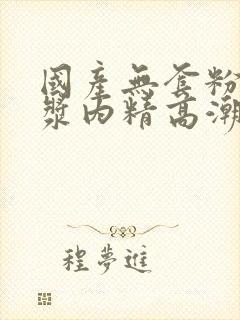 國產無套粉
漿內精高潮
程夢進